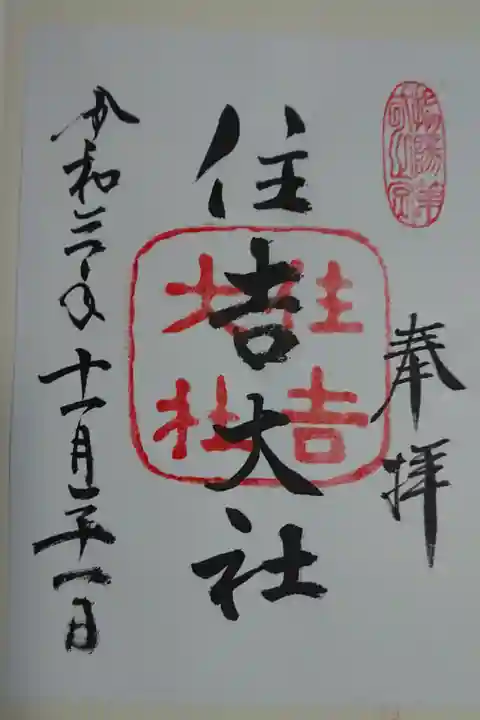 奉拝
住吉大社
住吉大社
令和三年十一月二十一日